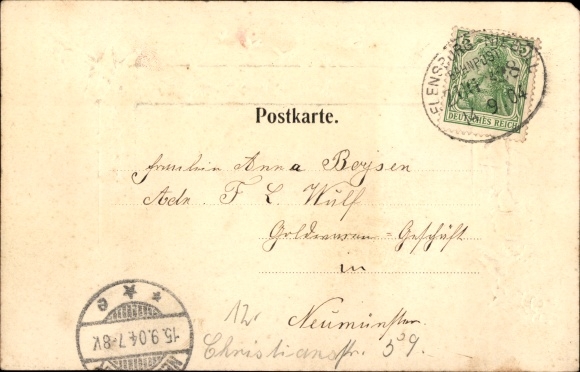 5 5
FLENSBURG
BAHNPOST
9 04
DEUTSCHES REICH
Postkarte.
Fräulein Anna Boysen
Adr. F L. Wulf
Goldwaren-Geschäft
in
Neumünster.
12.
Christianstr. 59.
15.9.04.7-8V.
e